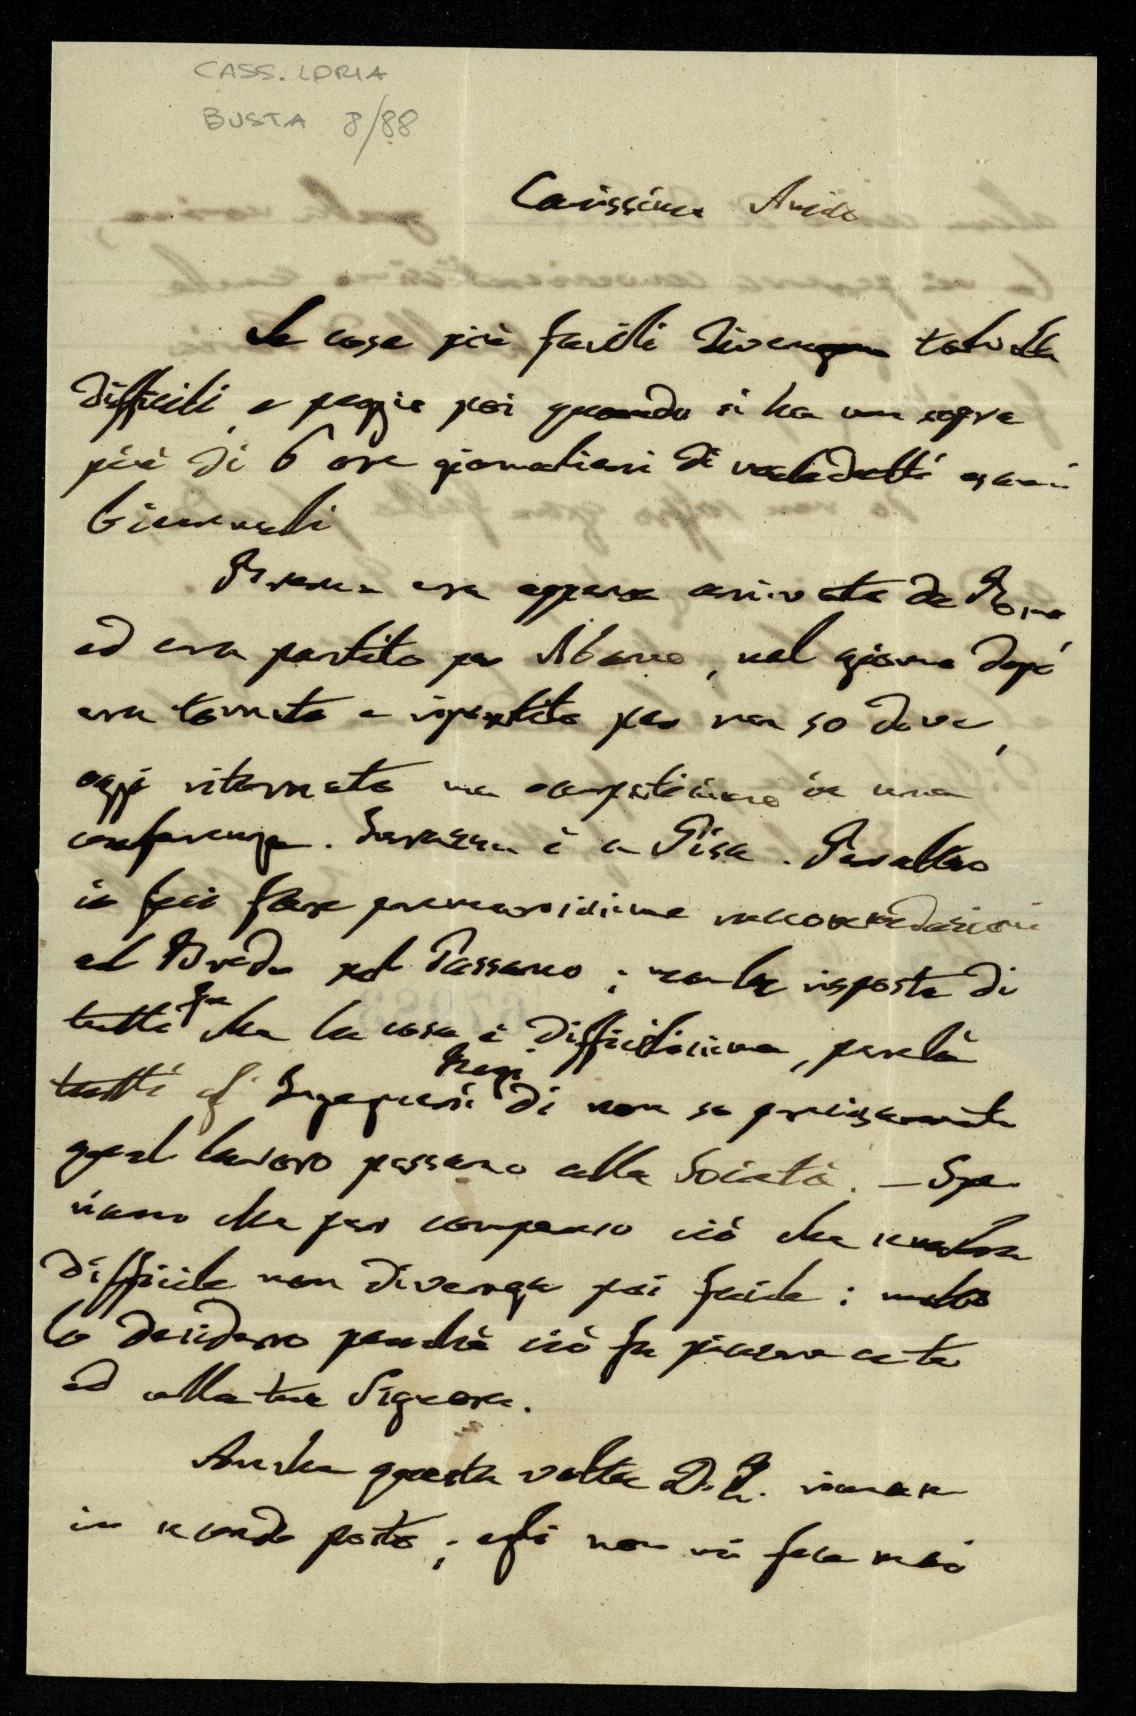 CASS. LORIA
BUSTA 8/88
Carissimo Amico
Le cose più facili divengono talvolta
difficili, e peggio poi quando si ha un sopra
più di 6 ore giornalieri di maledetti esami
biennali
era appena arrivato da Roma
ed era partito per Abano, nel giorno dopo
era tornato e ripartito per non so dove,
oggi ritornato ma occupatissimo in una
conferenza. è a Pisa. Peraltro
io feci fare premurosissime raccomandazioni
al Breda pel Passano; ma la risposta di
tutti fu che la cosa è difficilissima, perchè
tutti gl' Ingegneri Regi di non so precisamente
qual lavoro passano alla Società. — Spe
riamo che per compenso ciò che sembra
difficile non divenga poi facile: molto
lo desidero perchè ciò fa piacere a te
ed alla tua Signora.
Anche questa volta D. R. rimane
in secondo posto; egli non vi fece mai